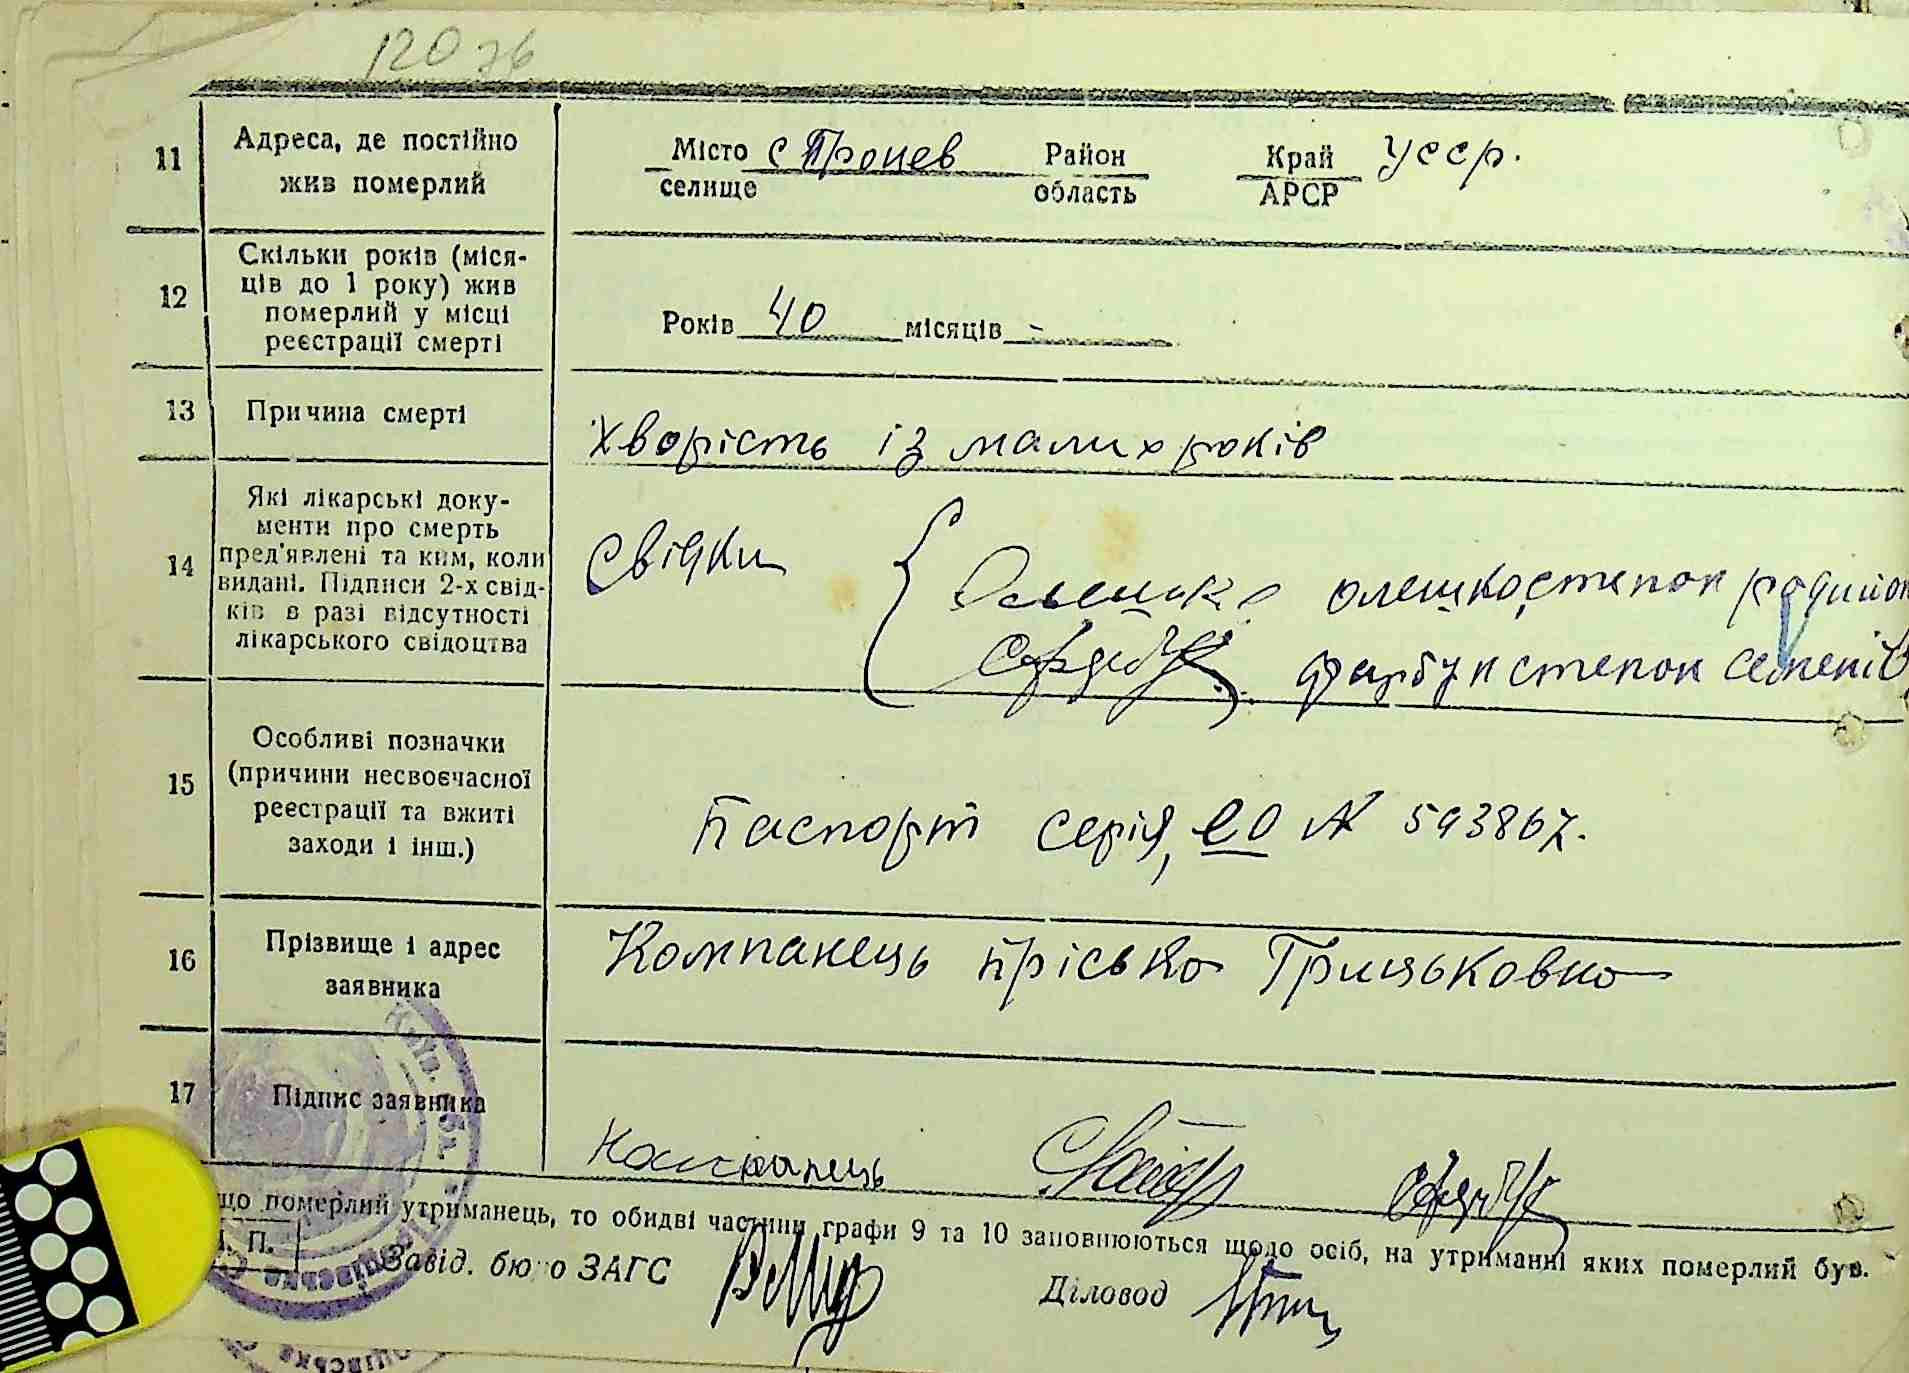 120 зв
11 Адреса, де постійно жив померлий Місто селище с Процев Район область Край АРСР УССР.
12 Скільки років (міся-
ців до 1 року) жив
померлий у місці
реєстрації смерті Років 40 місяців -
13 Причина смерті хворість із малих років
14 Які лікарські доку-
менти про смерть
пред'явлені та ким, коли
видані. Підписи 2-х свід-
ків в разі відсутності
лікарського свідоцтва Свідки
Олешко степон родийон
степон семенів
15 Особливі позначки
(причини несвоєчасної
реєстрації та вжиті
заходи і інш.) Паспорт серія, ЕО № 593867.
16 Прізвище і адрес
заявника Компанець Пріська Грицьковна
17 Підпис заявника Компанець
що померлий утриманець, то обидві частини графи 9 та 10 заповнюються щодо осіб, на утриманні яких померлий був.
П. Завід. бюро ЗАГС Діловод